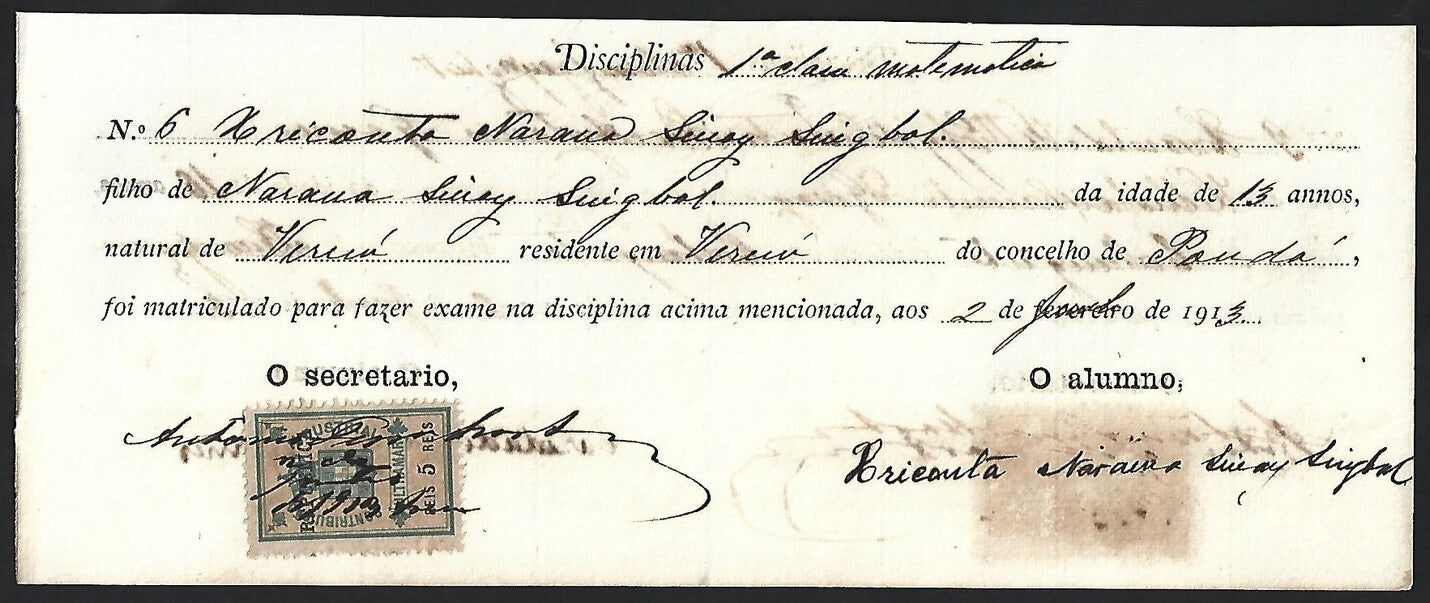 Disciplinas 1ª classe matematica
N.º 6 Xricanta Naraná Sinay Singbal.
filho de Naraná Sinay Singbal. da idade de 13 annos,
natural de Verem residente em Verem do concelho de Pondá,
foi matriculado para fazer exame na disciplina acima mencionada, aos 2 de fevereiro de 1913
O secretario,
O alumno,
Antonio
INDUSTRIAL
CONTRIBU
ULTRAMAR
REIS 5 REIS
Xricanta Naraina Sinay Singbal